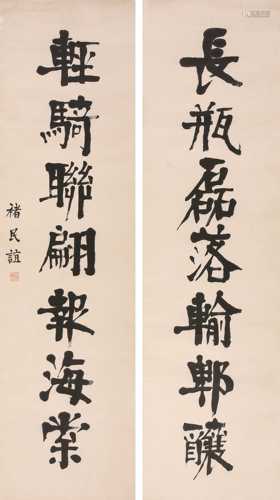 長瓶磊落輸郫釀
輕騎聯翩報海棠
褚民誼